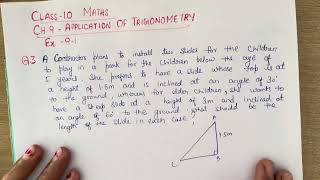 CLASS-10 MATHS
CH-9 - APPLICATION OF TRIGONOMETRY
EX-9.1
Q3 A Contractor plans to install two slides for the Children
to play in a park for the children below the age of
5 years she prefers to have a slide whose top is at
a height of 1.5m and is inclined at an angle of 30°
to the ground, whereas for older children, she wants to
have a steep slide at a height of 3m and inclined at
an angle of 60° to the ground what should be the
length of the slide in each case,
A
1.5m
B
C